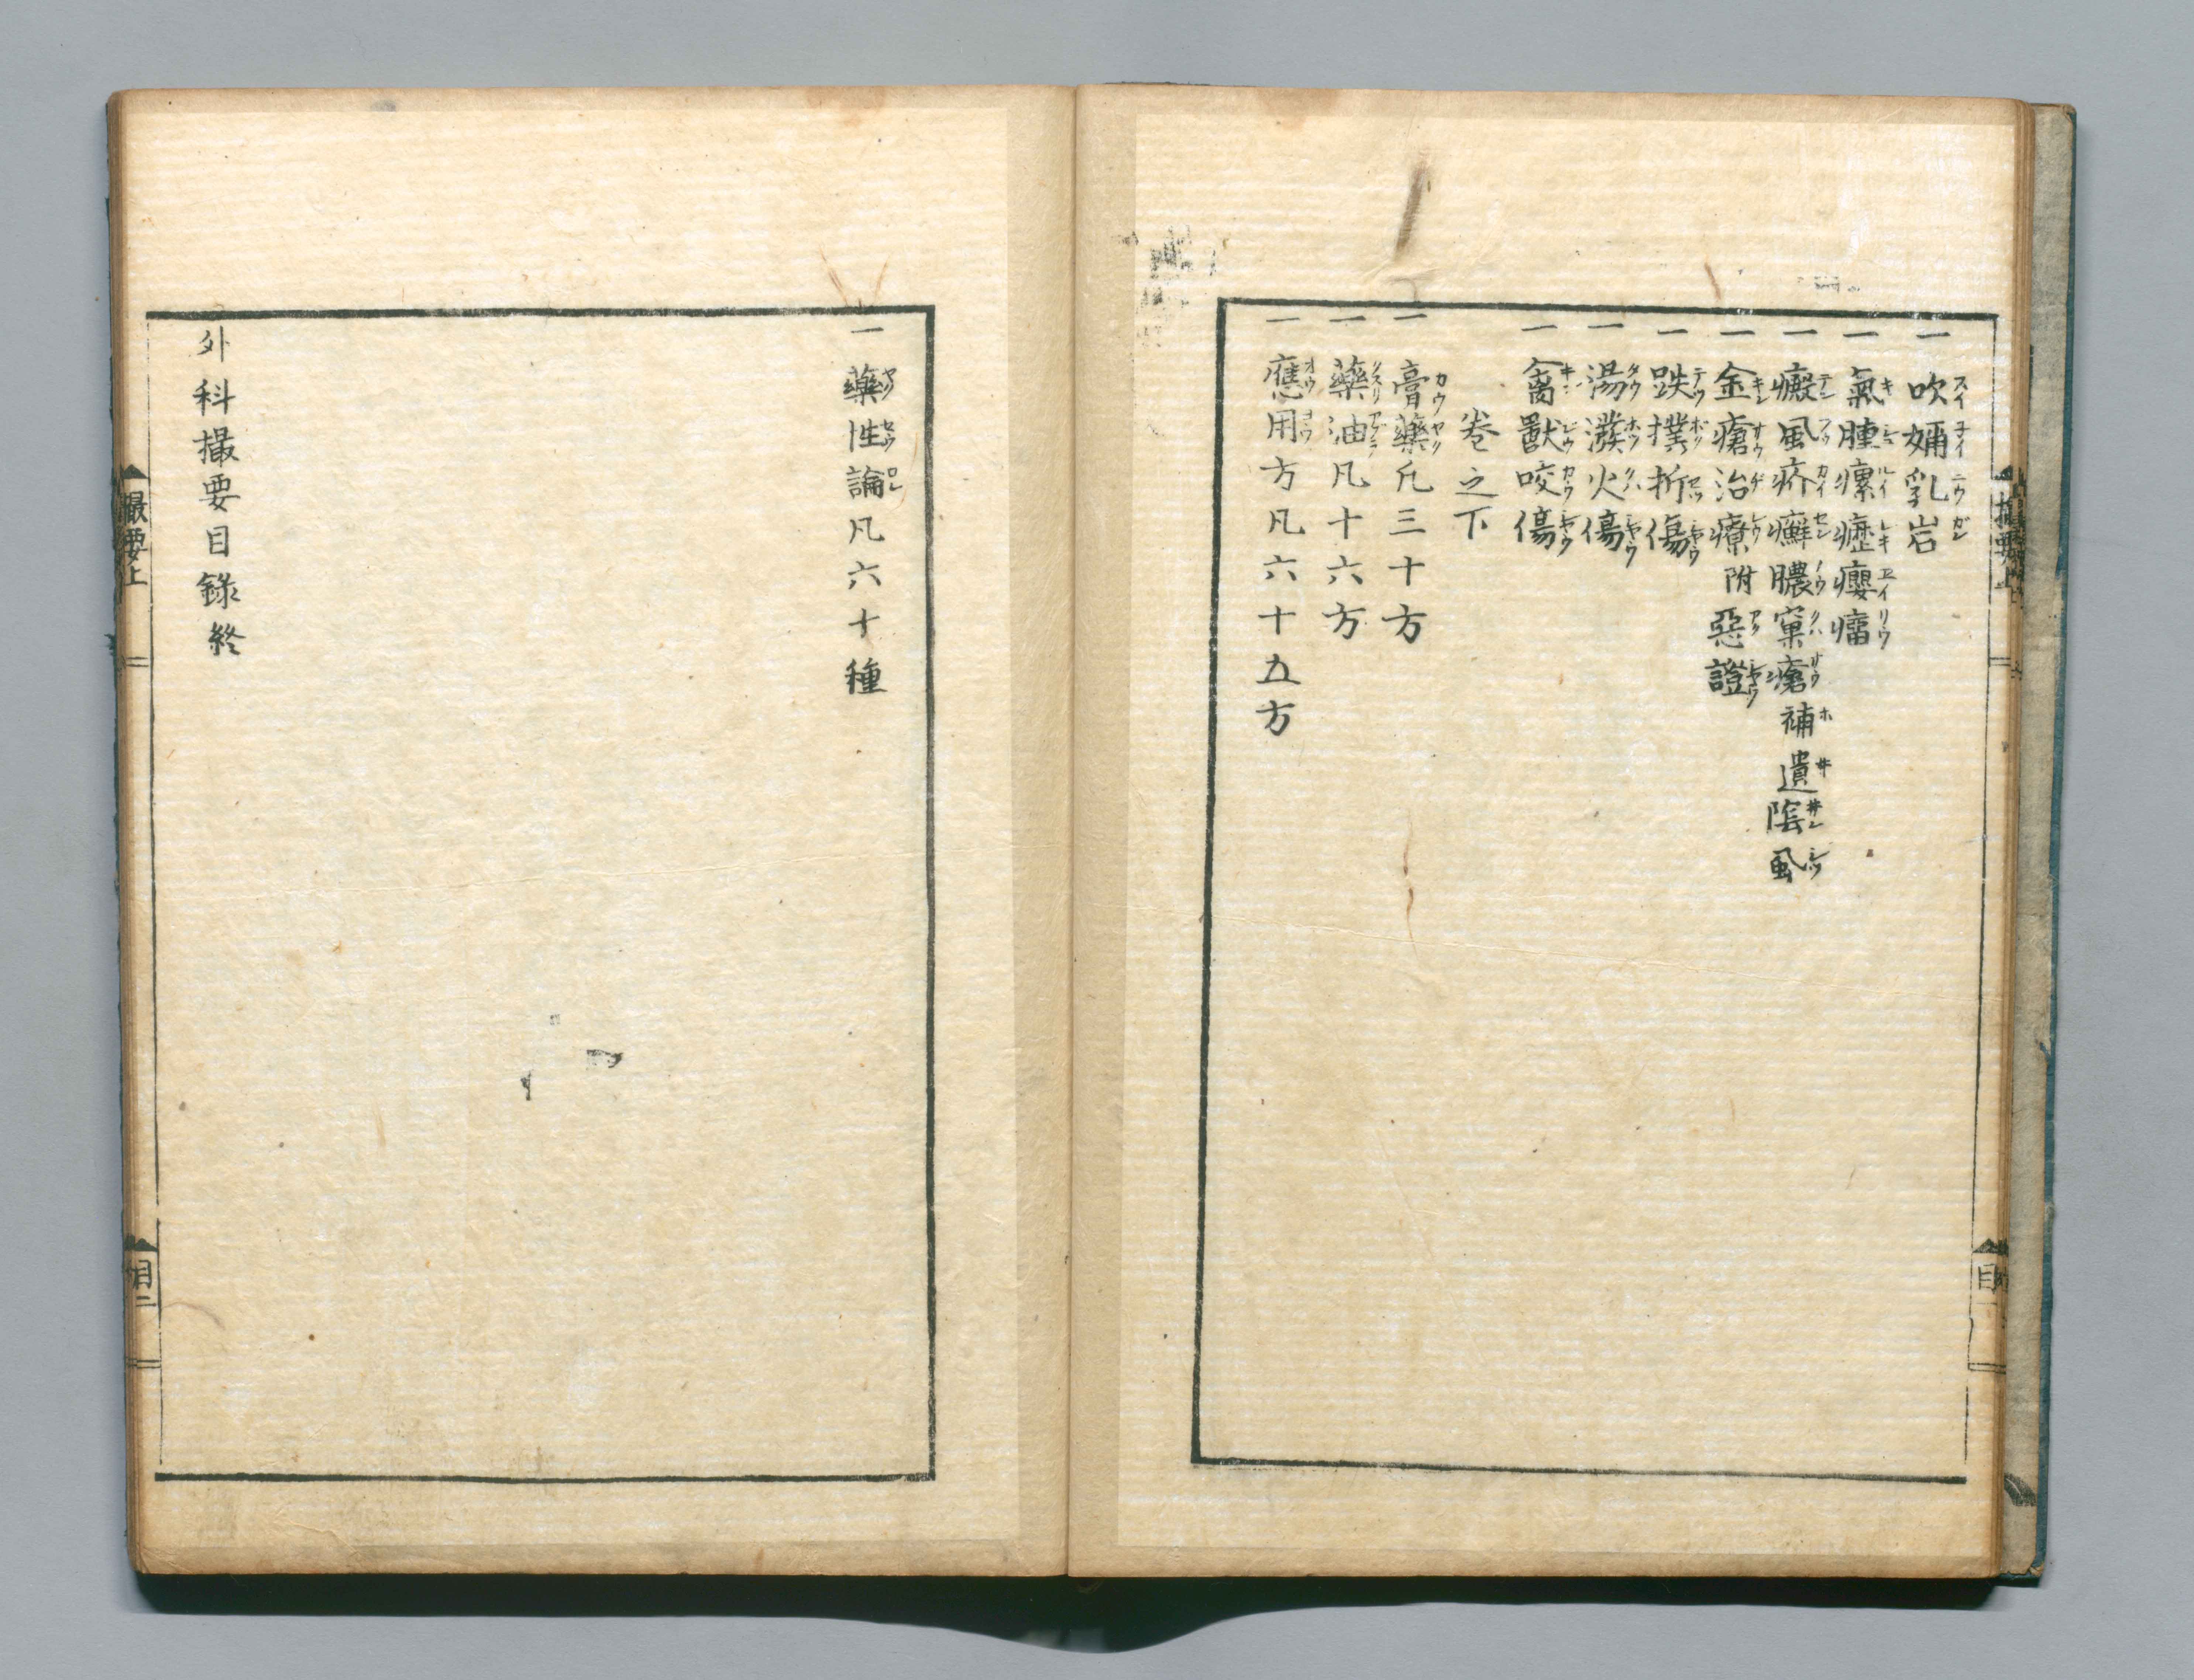 一 吹妳乳岩
一 氣腫瘰癧癭瘤
一 癜風疥癬膿窠瘡 補遺陰虱
一 金瘡治療附惡證
一 跌撲折傷
一 湯潑火傷
一 禽獸咬傷
卷之下
一 膏藥凡三十方
一 藥油凡十六方
一 應用方凡六十五方
一 藥性論凡六十種
外科撮要目錄終
撮要上
目二